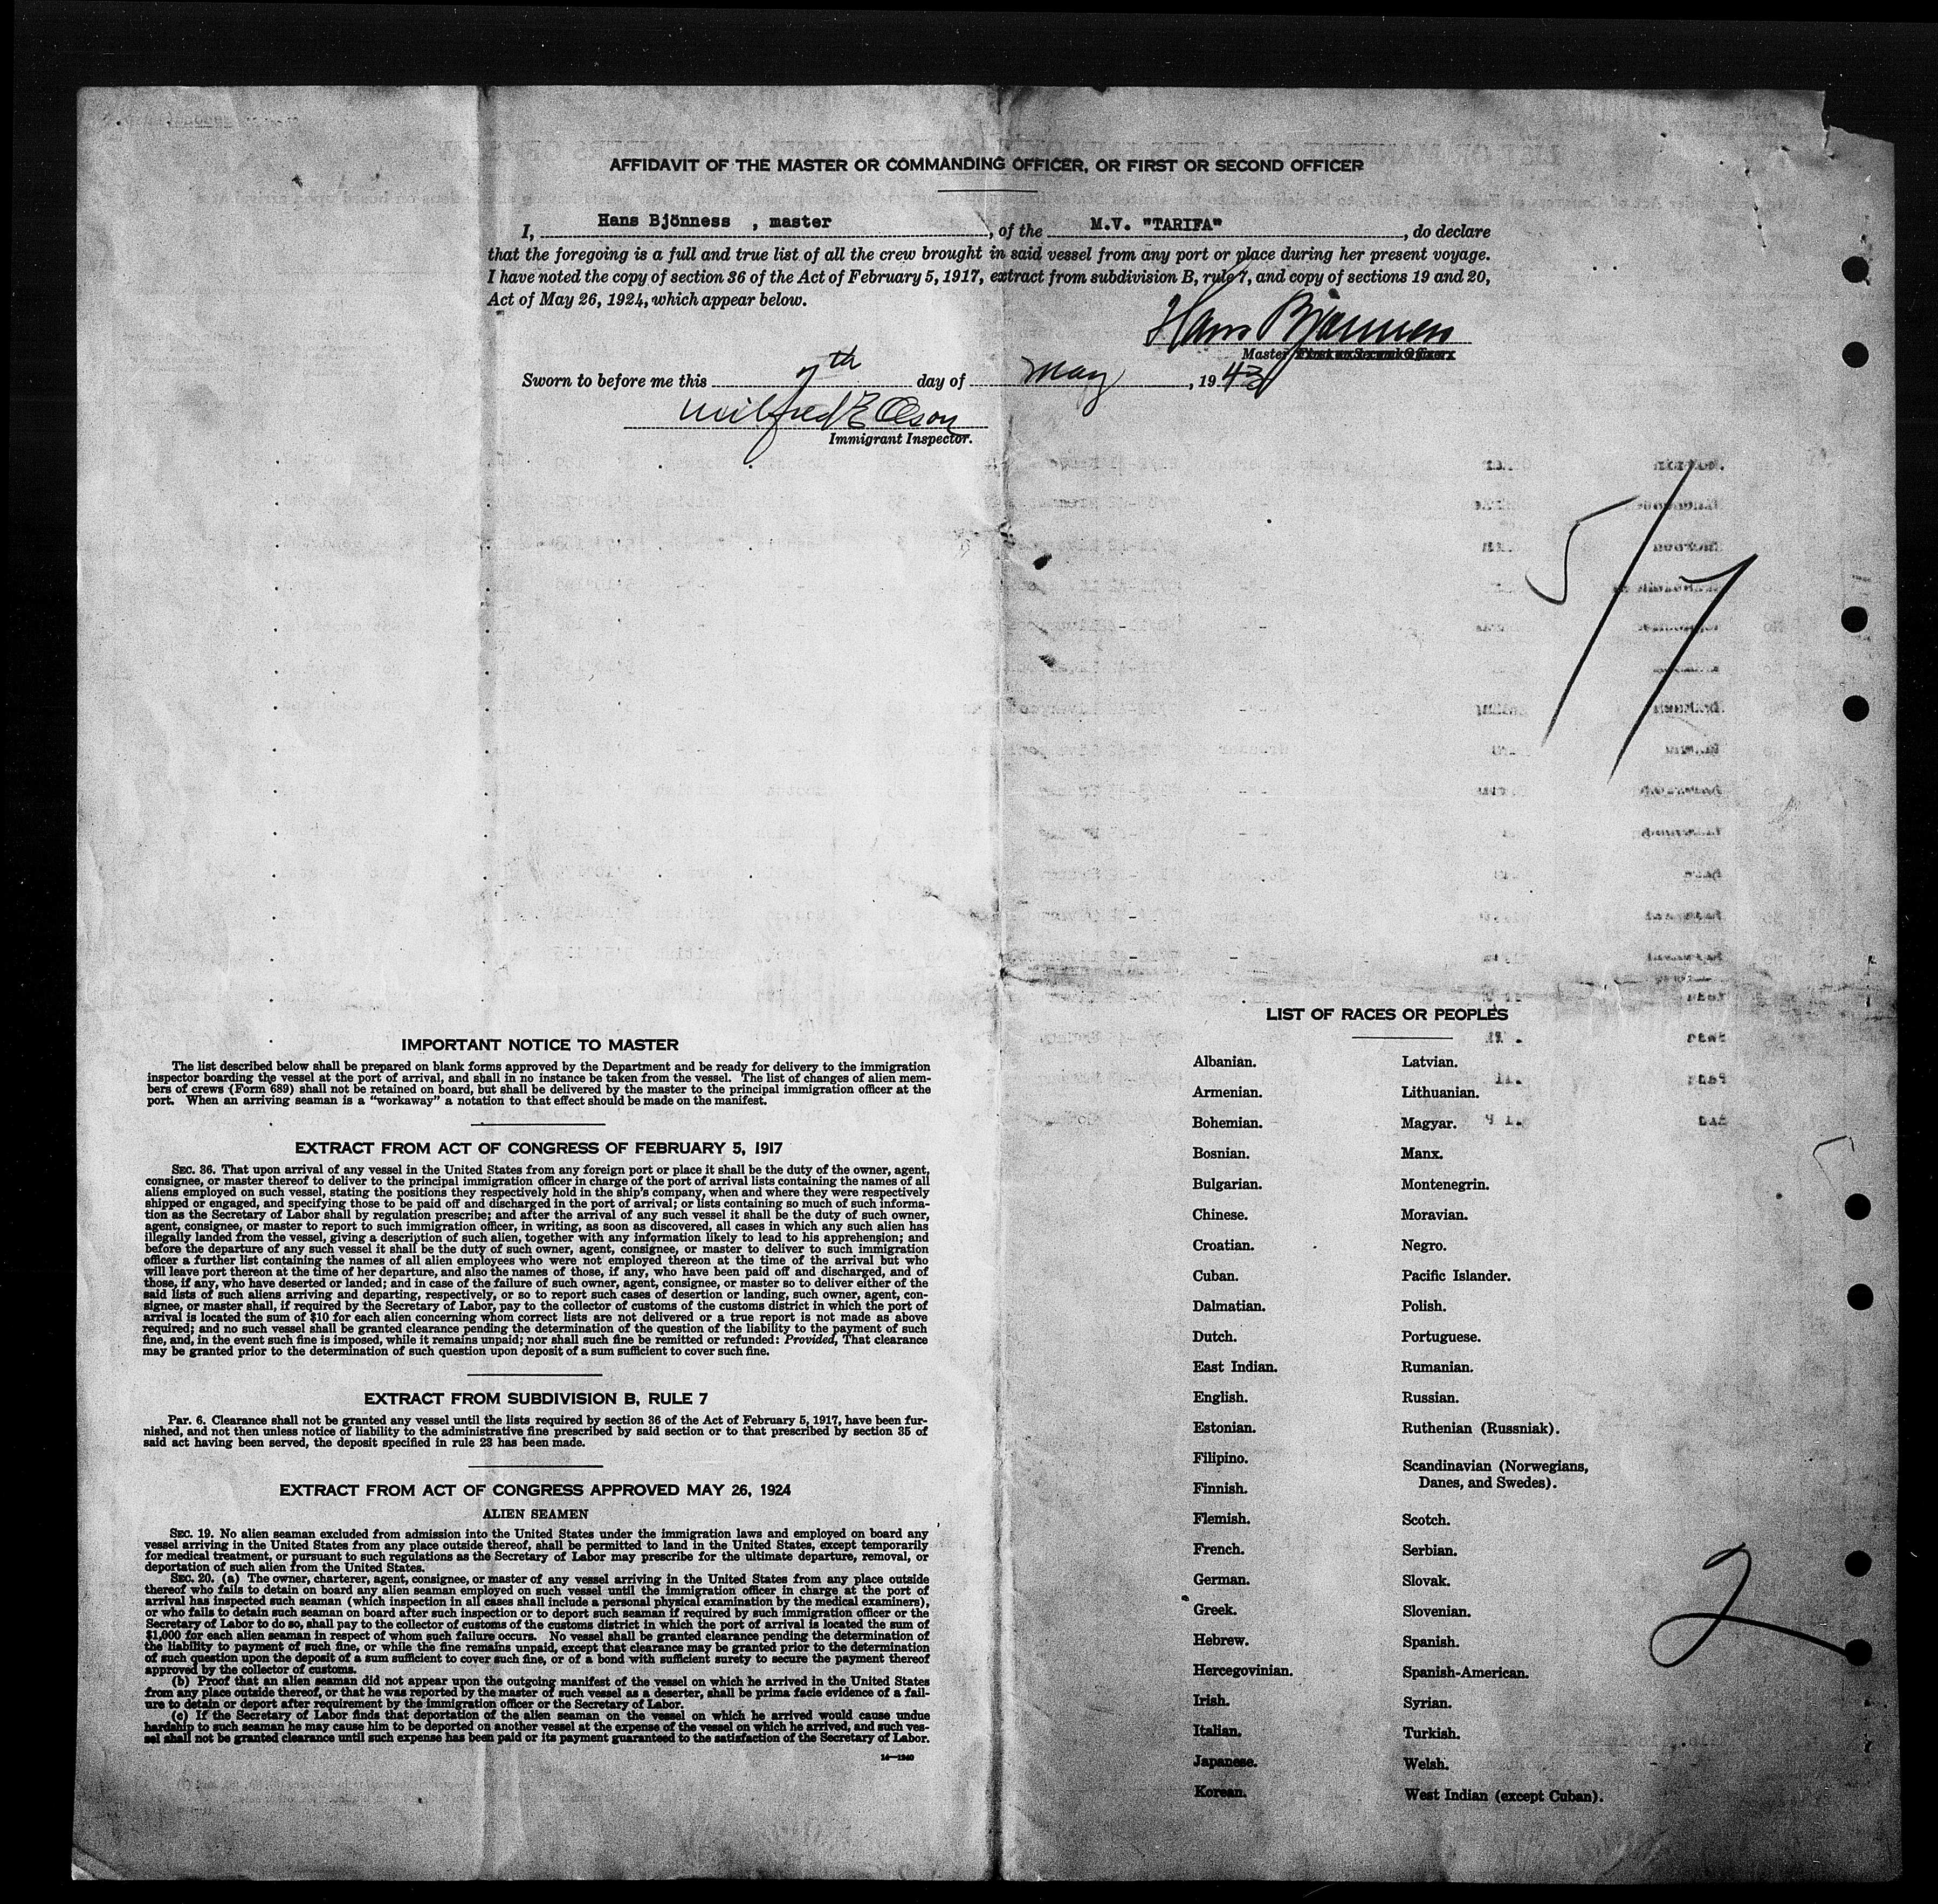 AFFIDAVIT OF THE MASTER OR COMMANDING OFFICER, OR FIRST OR SECOND OFFICER
I, Hans Bjönness , master, of the M.V. "TARIFA", do declare
that the foregoing is a full and true list of all the crew brought in said vessel from any port or place during her present voyage.
I have noted the copy of section 36 of the Act of February 5, 1917, extract from subdivision B, rule 7, and copy of sections 19 and 20,
Act of May 26, 1924, which appear below.
Hans Bjönness
Master First or Second Officer
Sworn to before me this 7th day of May, 1943
Milfred E Olson
Immigrant Inspector.
5/7
IMPORTANT NOTICE TO MASTER
The list described below shall be prepared on blank forms approved by the Department and be ready for delivery to the immigration
inspector boarding the vessel at the port of arrival, and shall in no instance be taken from the vessel. The list of changes of alien mem-
bers of crews (Form 689) shall not be retained on board, but shall be delivered by the master to the principal immigration officer at the
port. When an arriving seaman is a "workaway" a notation to that effect should be made on the manifest.
EXTRACT FROM ACT OF CONGRESS OF FEBRUARY 5, 1917
SEC. 36. That upon arrival of any vessel in the United States from any foreign port or place it shall be the duty of the owner, agent,
consignee, or master thereof to deliver to the principal immigration officer in charge of the port of arrival lists containing the names of all
aliens employed on such vessel, stating the positions they respectively hold in the ship's company, when and where they were respectively
shipped or engaged, and specifying those to be paid off and discharged in the port of arrival; or lists containing so much of such informa-
tion as the Secretary of Labor shall by regulation prescribe; and after the arrival of any such vessel it shall be the duty of such owner,
agent, consignee, or master to report to such immigration officer, in writing, as soon as discovered, all cases in which any such alien has
illegally landed from the vessel, giving a description of such alien, together with any information likely to lead to his apprehension; and
before the departure of any such vessel it shall be the duty of such owner, agent, consignee, or master to deliver to such immigration
officer a further list containing the names of all alien employees who were not employed thereon at the time of the arrival but who
will leave port thereon at the time of her departure, and also the names of those, if any, who have been paid off and discharged, and of
those, if any, who have deserted or landed; and in case of the failure of such owner, agent, consignee, or master so to deliver either of the
said lists of such aliens arriving and departing, respectively, or so to report such cases of desertion or landing, such owner, agent, con-
signee, or master shall, if required by the Secretary of Labor, pay to the collector of customs of the customs district in which the port of
arrival is located the sum of $10 for each alien concerning whom correct lists are not delivered or a true report is not made as above
required; and no such vessel shall be granted clearance pending the determination of the question of the liability to the payment of such
fine, and, in the event such fine is imposed, while it remains unpaid; nor shall such fine be remitted or refunded: Provided, That clearance
may be granted prior to the determination of such question upon deposit of a sum sufficient to cover such fine.
EXTRACT FROM SUBDIVISION B, RULE 7
Par. 6. Clearance shall not be granted any vessel until the lists required by section 36 of the Act of February 5, 1917, have been fur-
nished, and not then unless notice of liability to the administrative fine prescribed by said section or to that prescribed by section 35 of
said act having been served, the deposit specified in rule 23 has been made.
EXTRACT FROM ACT OF CONGRESS APPROVED MAY 26, 1924
ALIEN SEAMEN
SEC. 19. No alien seaman excluded from admission into the United States under the immigration laws and employed on board any
vessel arriving in the United States from any place outside thereof, shall be permitted to land in the United States, except temporarily
for medical treatment, or pursuant to such regulations as the Secretary of Labor may prescribe for the ultimate departure, removal, or
deportation of such alien from the United States.
SEC. 20. (a) The owner, charterer, agent, consignee, or master of any vessel arriving in the United States from any place outside
thereof who fails to detain on board any alien seaman employed on such vessel until the immigration officer in charge at the port of
arrival has inspected such seaman (which inspection in all cases shall include a personal physical examination by the medical examiners),
or who fails to detain such seaman on board after such inspection or to deport such seaman if required by such immigration officer or the
Secretary of Labor to do so, shall pay to the collector of customs of the customs district in which the port of arrival is located the sum of
$1,000 for each alien seaman in respect of whom such failure occurs. No vessel shall be granted clearance pending the determination of
the liability to payment of such fine, or while the fine remains unpaid, except that clearance may be granted prior to the determination
of such question upon the deposit of a sum sufficient to cover such fine, or of a bond with sufficient surety to secure the payment thereof
approved by the collector of customs.
(b) Proof that an alien seaman did not appear upon the outgoing manifest of the vessel on which he arrived in the United States
from any place outside thereof, or that he was reported by the master of such vessel as a deserter, shall be prima facie evidence of a fail-
ure to detain or deport after requirement by the immigration officer or the Secretary of Labor.
(c) If the Secretary of Labor finds that deportation of the alien seaman on the vessel on which he arrived would cause undue
hardship to such seaman he may cause him to be deported on another vessel at the expense of the vessel on which he arrived, and such ves-
sel shall not be granted clearance until such expense has been paid or its payment guaranteed to the satisfaction of the Secretary of Labor.
14—1240
LIST OF RACES OR PEOPLES
Albanian.
Armenian.
Bohemian.
Bosnian.
Bulgarian.
Chinese.
Croatian.
Cuban.
Dalmatian.
Dutch.
East Indian.
English.
Estonian.
Filipino.
Finnish.
Flemish.
French.
German.
Greek.
Hebrew.
Hercegovinian.
Irish.
Italian.
Japanese.
Korean.
Latvian.
Lithuanian.
Magyar.
Manx.
Montenegrin.
Moravian.
Negro.
Pacific Islander.
Polish.
Portuguese.
Rumanian.
Russian.
Ruthenian (Russniak).
Scandinavian (Norwegians,
Danes, and Swedes).
Scotch.
Serbian.
Slovak.
Slovenian.
Spanish.
Spanish-American.
Syrian.
Turkish.
Welsh.
West Indian (except Cuban).
2